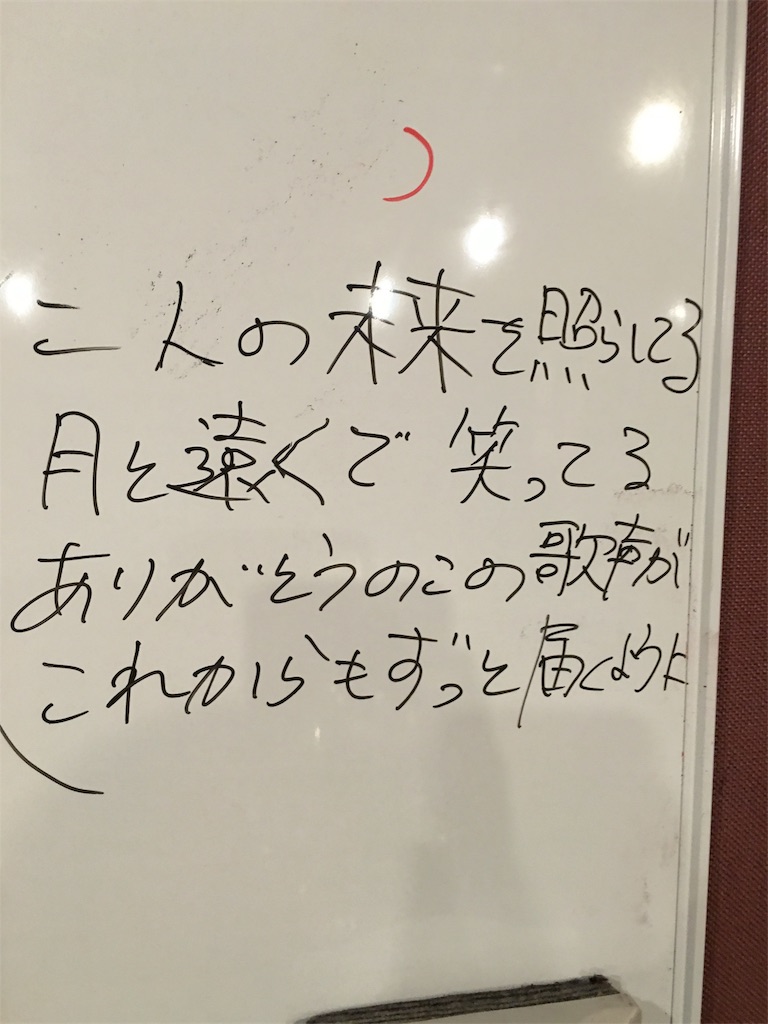 二人の未来を照らしてる
月と遠くで笑ってる
ありがとうのこの歌声が
これからもずっと届くように